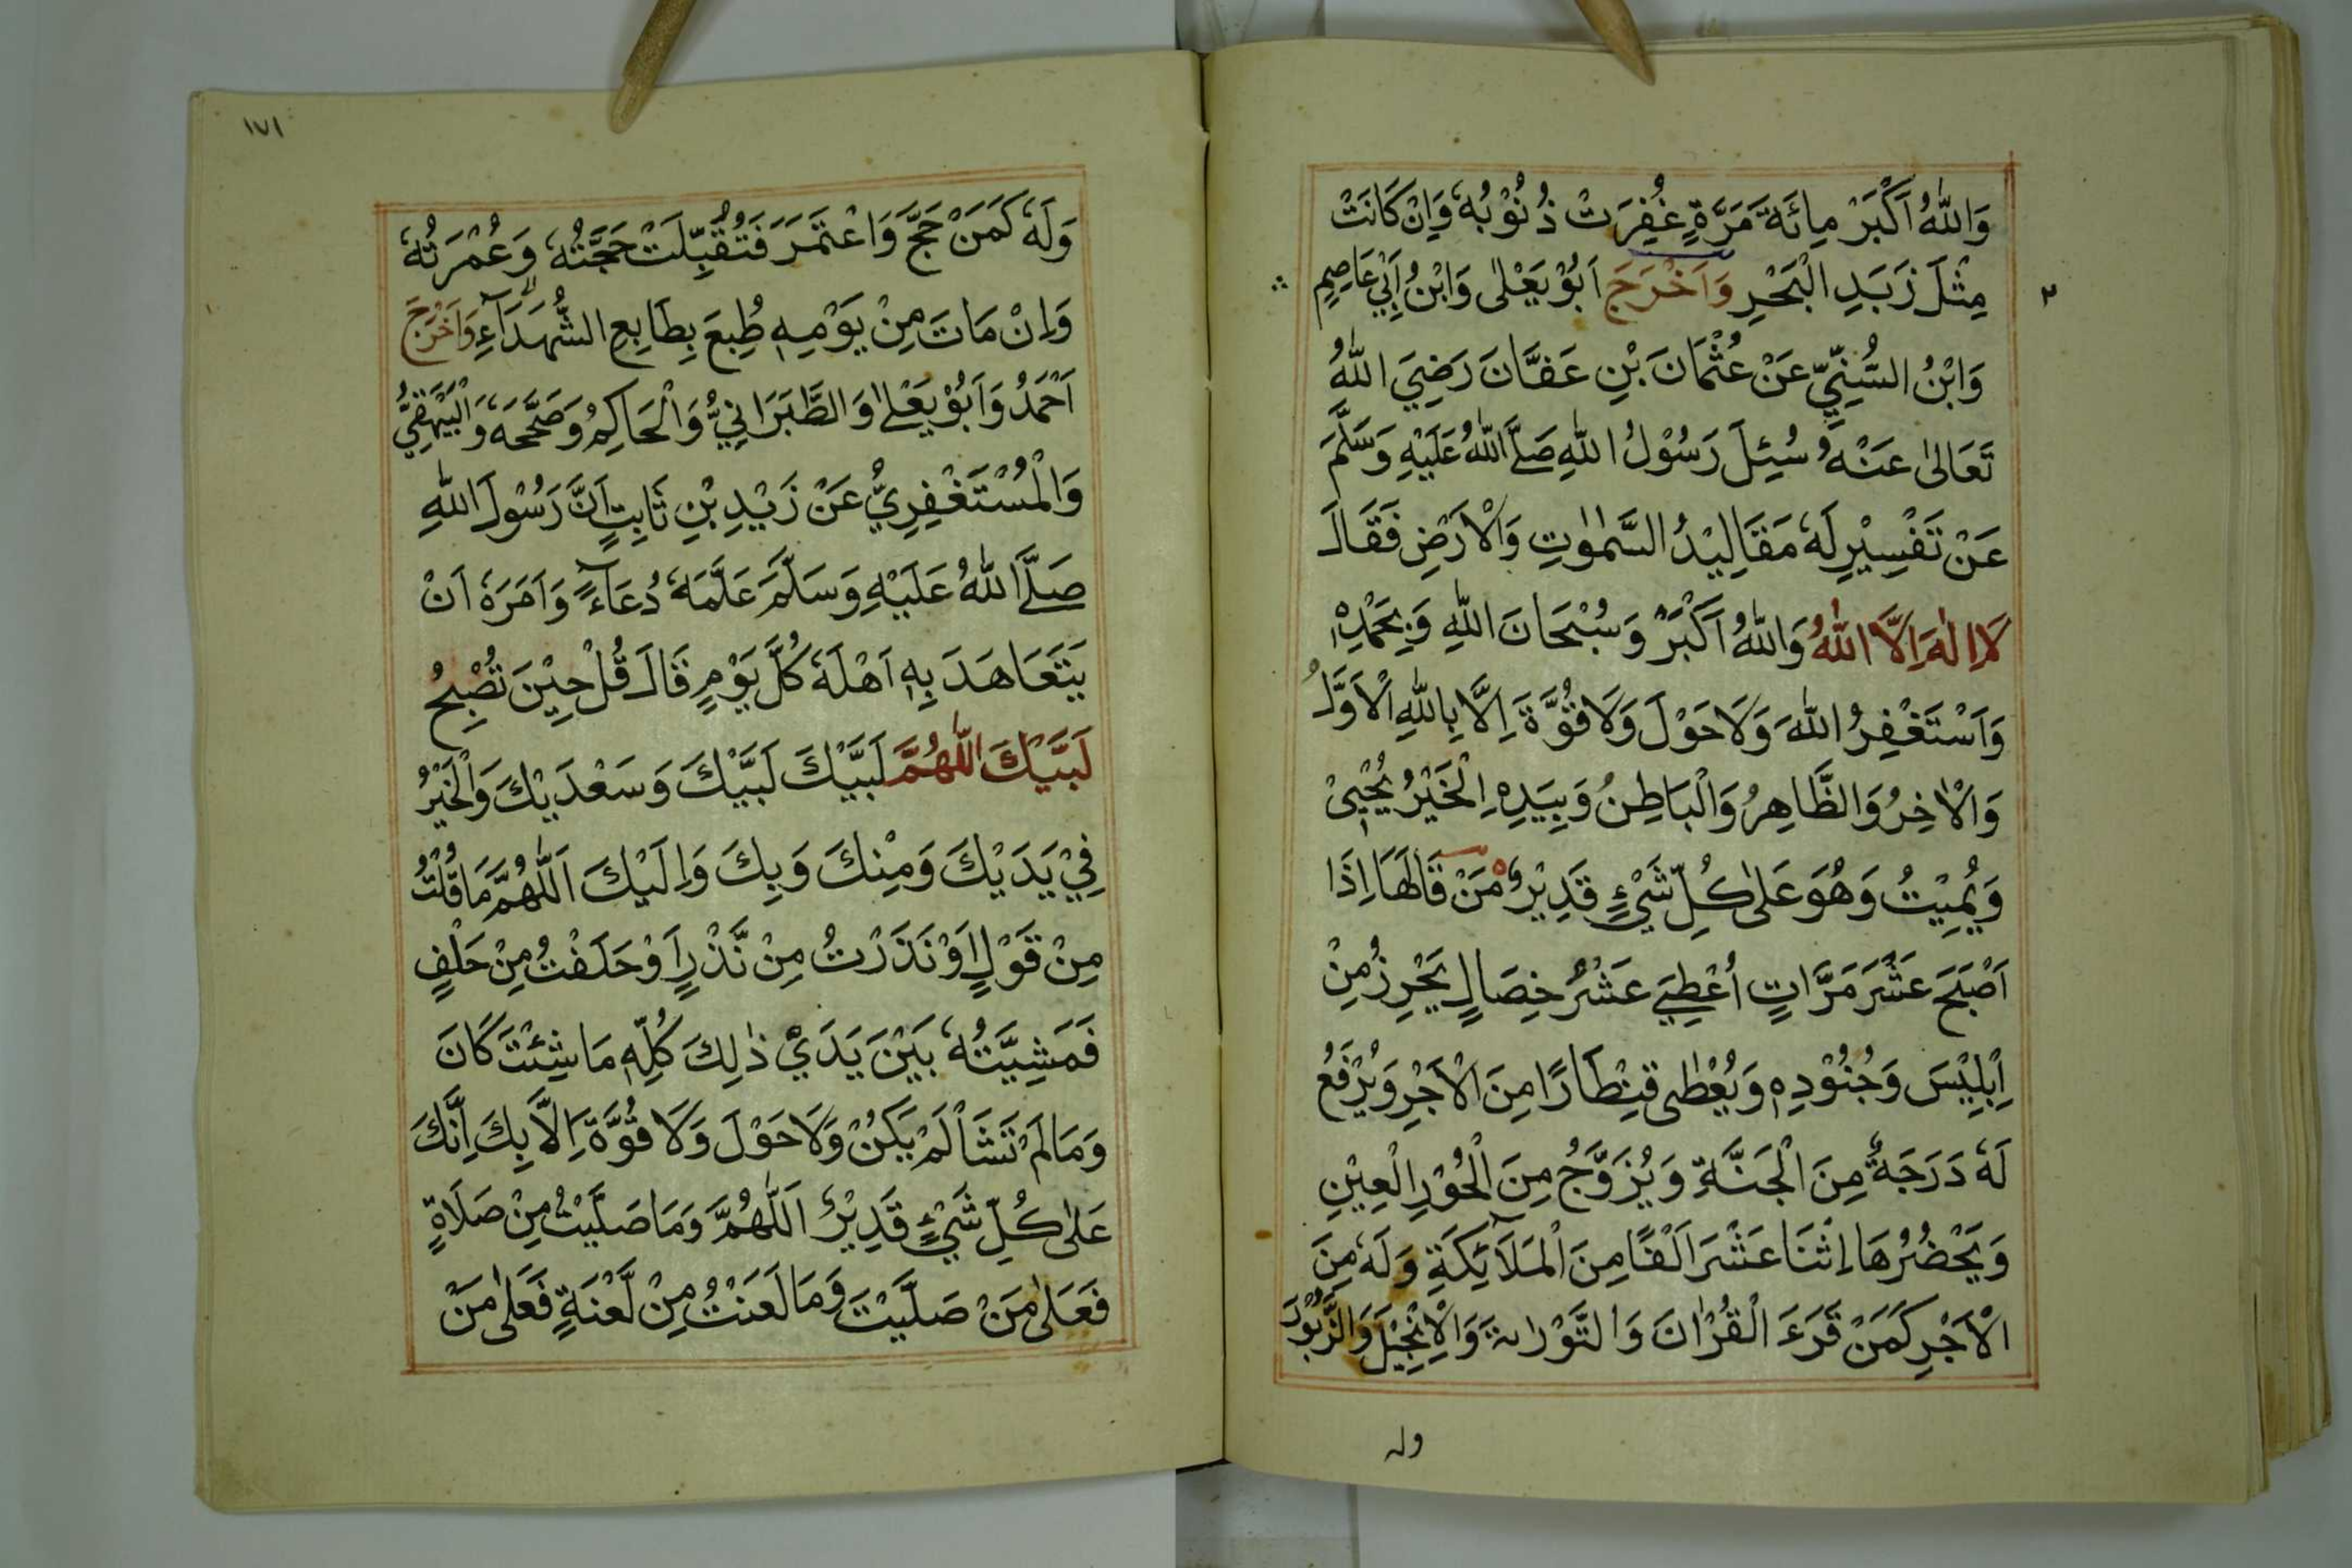 وَاللّٰهُ اَكْبَرْ مِائَةَ مَرَّةٍ غُفِرَتْ ذُنُوْبُهٗ وَاِنْ كَانَتْ
مِثْلَ زَبَدِ الْبَحْرِ وَاَخْرَجَ اَبُوْ يَعْلٰى وَابْنُ اَبِيْ عَاصِمٍ
وَابْنُ السُّنِّيِّ عَنْ عُثْمَانَ بْنِ عَفَّانَ رَضِيَ اللّٰهُ
تَعَالٰى عَنْهُ سُئِلَ رَسُوْلُ اللّٰهِ صَلَّى اللّٰهُ عَلَيْهِ وَسَلَّمَ
عَنْ تَفْسِيْرِ لَهٗ مَقَالِيْدُ السَّمٰوٰتِ وَالْاَرْضِ فَقَالَ
لَا اِلٰهَ اِلَّا اللّٰهُ وَاللّٰهُ اَكْبَرُ وَسُبْحَانَ اللّٰهِ وَبِحَمْدِهٖ
وَاَسْتَغْفِرُ اللّٰهَ وَلَا حَوْلَ وَلَا قُوَّةَ اِلَّا بِاللّٰهِ الْاَوَّلُ
وَالْاٰخِرُ وَالظَّاهِرُ وَالْبَاطِنُ وَبِيَدِهِ الْخَيْرُ يُحْيِيْ
وَيُمِيْتُ وَهُوَ عَلٰى كُلِّ شَيْءٍ قَدِيْرٌ مَنْ قَالَهَا اِذَا
اَصْبَحَ عَشَرَ مَرَّاتٍ اُعْطِيَ عَشْرُ خِصَالٍ يَحْرِزُ مِنْ
اِبْلِيْسَ وَجُنُوْدِهٖ وَيُعْطٰى قِنْطَارًا مِنَ الْاَجْرِ وَيُرْفَعُ
لَهٗ دَرَجَةٌ مِنَ الْجَنَّةِ وَيُزَوَّجُ مِنَ الْحُوْرِ الْعِيْنِ
وَيَحْضُرُهَا اِثْنَا عَشَرَ اَلْفًا مِنَ الْمَلَآئِكَةِ وَلَهٗ مِنَ
الْاَجْرِ كَمَنْ قَرَءَ الْقُرْاٰنَ وَالتَّوْرٰىةَ وَالْاِنْجِيْلَ وَالزَّبُوْرَ
وله
١٧١
وَلَهٗ كَمَنْ حَجَّ وَاعْتَمَرَ فَتُقُبِّلَتْ حَجَّتُهٗ وَعُمْرَتُهٗ
وَاِنْ مَاتَ مِنْ يَوْمِهٖ طُبِعَ بِطَابِعِ الشُّهَدَآءِ وَاَخْرَجَ
اَحْمَدُ وَاَبُوْ يَعْلٰى وَالطَّبَرَانِيُّ وَالْحَاكِمُ وَصَحَّحَهٗ وَالْبَيْهَقِيُّ
وَالْمُسْتَغْفِرِيُّ عَنْ زَيْدِ بْنِ ثَابِتٍ اَنَّ رَسُوْلَ اللّٰهِ
صَلَّى اللّٰهُ عَلَيْهِ وَسَلَّمَ عَلَّمَهٗ دُعَآءً وَاَمَرَهٗ اَنْ
يَتَعَاهَدَ بِهٖ اَهْلَهٗ كُلَّ يَوْمٍ قَالَ قُلْ حِيْنَ تُصْبِحُ
لَبَّيْكَ اللّٰهُمَّ لَبَّيْكَ لَبَّيْكَ وَسَعْدَيْكَ وَالْخَيْرُ
فِيْ يَدَيْكَ وَمِنْكَ وَبِكَ وَاِلَيْكَ اَللّٰهُمَّ مَا قُلْتُ
مِنْ قَوْلٍ اَوْ نَذَرْتُ مِنْ نَّذْرٍ اَوْ حَلَفْتُ مِنْ حَلْفٍ
فَمَشِيَّتُهٗ بَيْنَ يَدَيْ ذٰلِكَ كُلِّهٖ مَا شِئْتَ كَانَ
وَمَا لَمْ تَشَأْ لَمْ يَكُنْ وَلَا حَوْلَ وَلَا قُوَّةَ اِلَّا بِكَ اِنَّكَ
عَلٰى كُلِّ شَيْءٍ قَدِيْرٌ اَللّٰهُمَّ وَمَا صَلَّيْتُ مِنْ صَلَاةٍ
فَعَلٰى مَنْ صَلَّيْتَ وَمَا لَعَنْتُ مِنْ لَّعْنَةٍ فَعَلٰى مَنْ